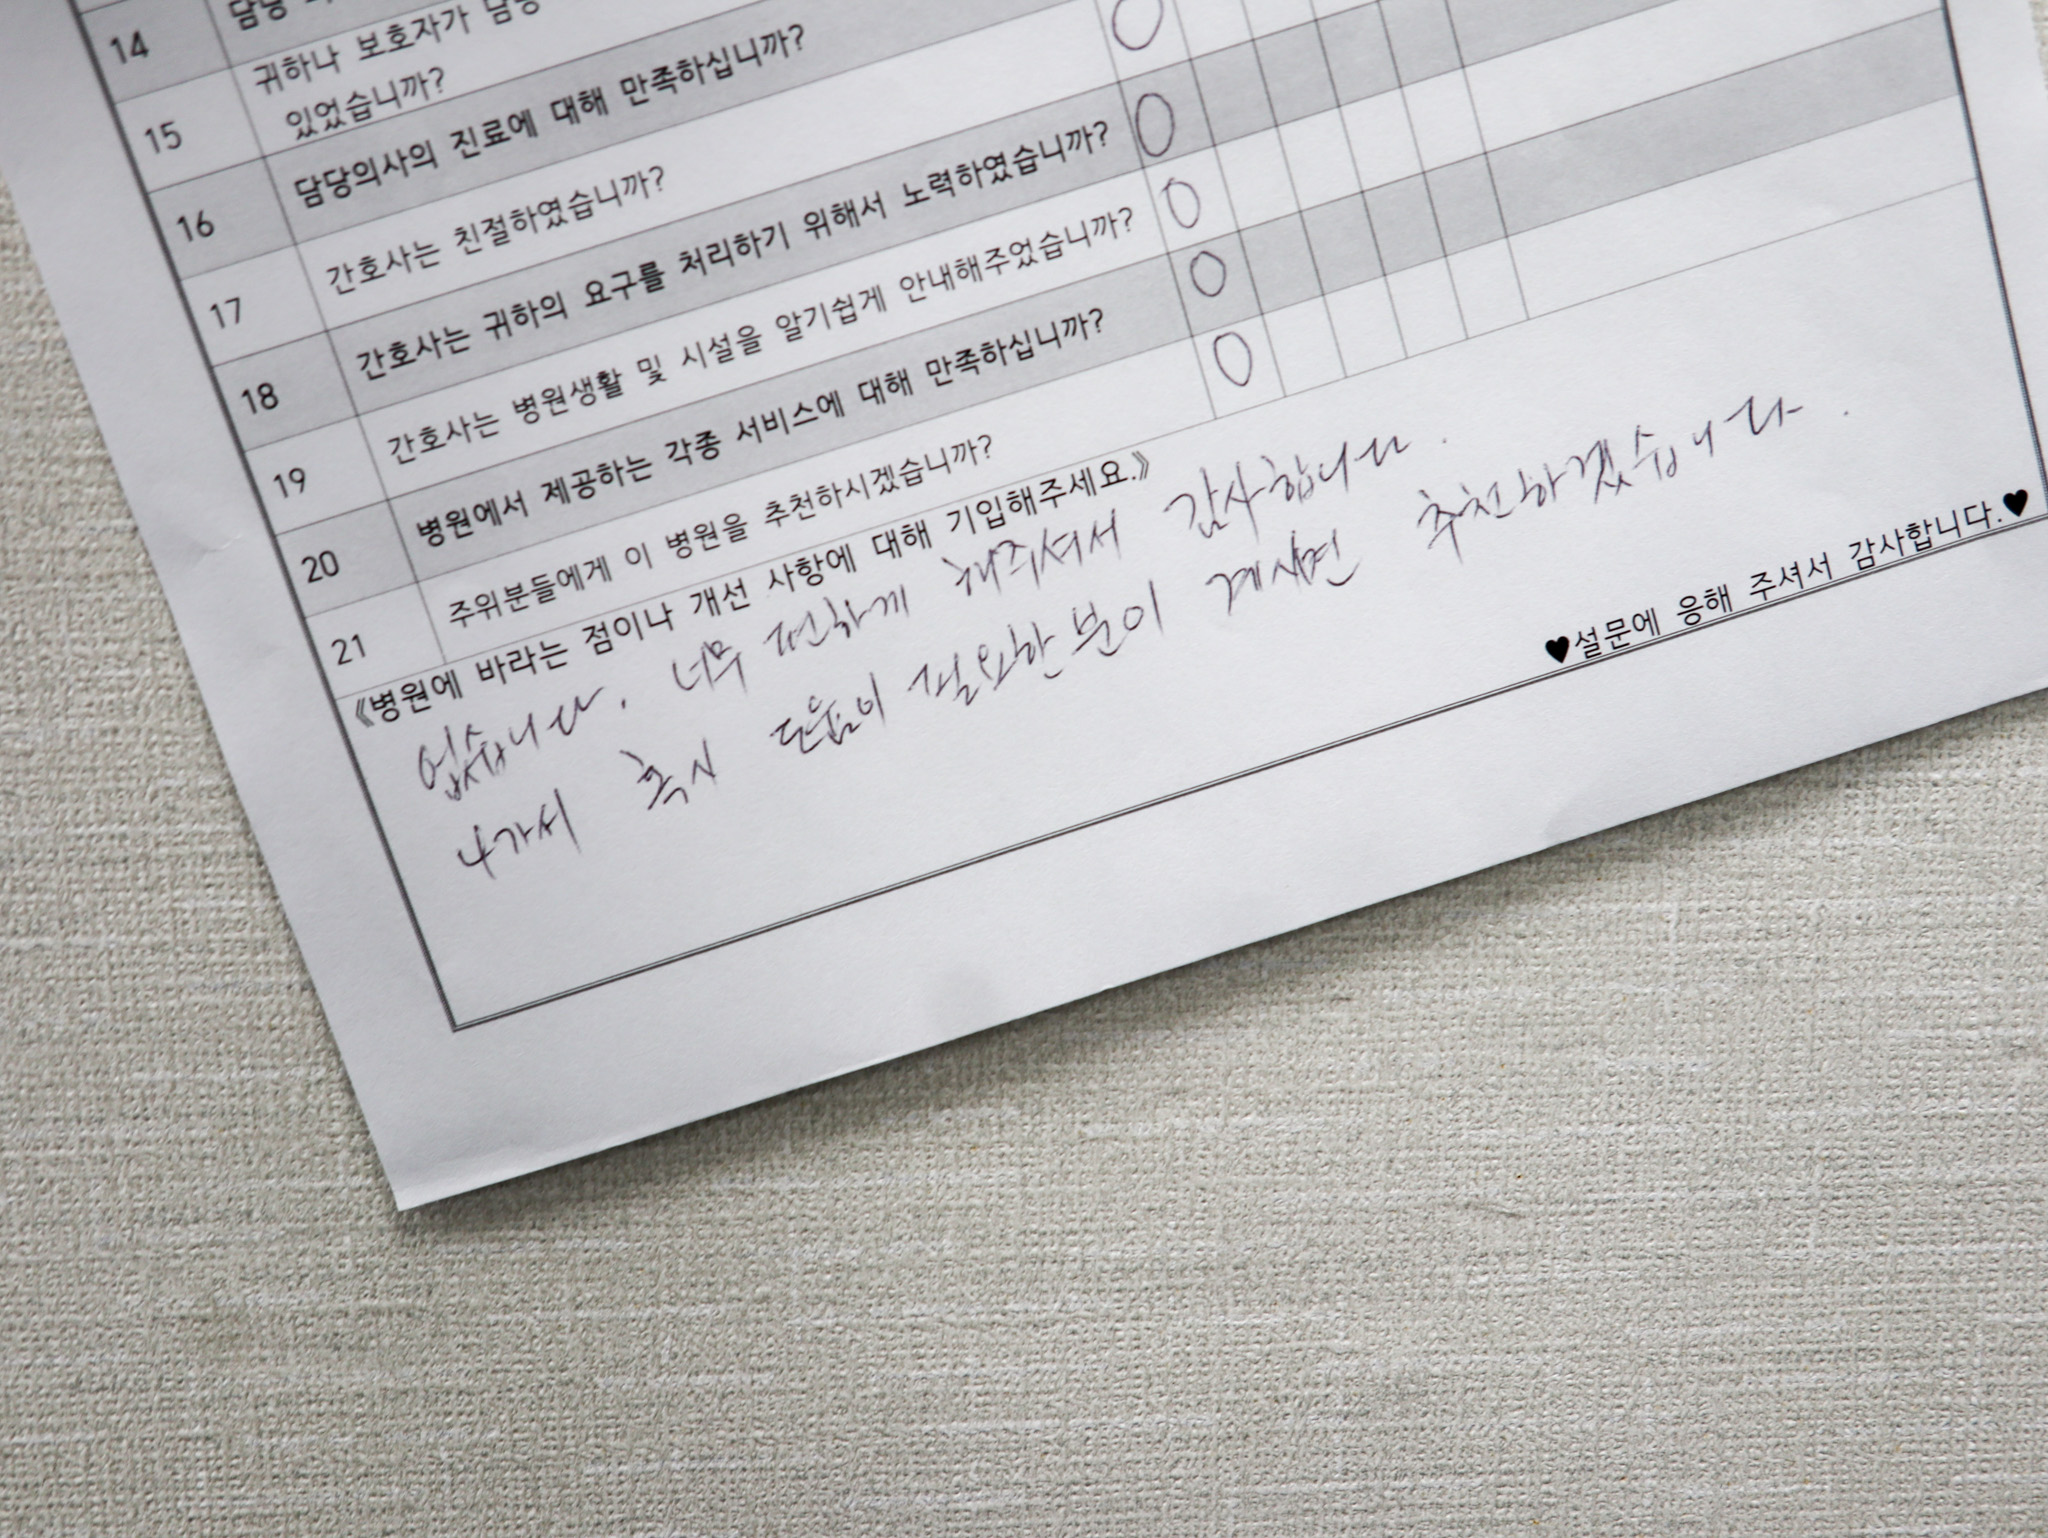 14 담당
15 귀하나 보호자가 담당
있었습니까?
16 담당의사의 진료에 대해 만족하십니까?
17 간호사는 친절하였습니까?
18 간호사는 귀하의 요구를 처리하기 위해서 노력하였습니까?
19 간호사는 병원생활 및 시설을 알기쉽게 안내해주었습니까?
20 병원에서 제공하는 각종 서비스에 대해 만족하십니까?
21 주위분들에게 이 병원을 추천하시겠습니까?
《병원에 바라는 점이나 개선 사항에 대해 기입해주세요.》
없습니다. 너무 편하게 해주셔서 감사합니다.
나가서 혹시 도움이 필요한 분이 계시면 추천하겠습니다.
♥설문에 응해 주셔서 감사합니다.♥